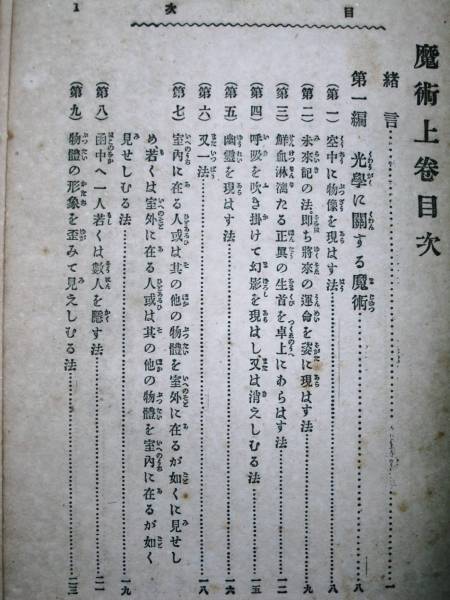 目次 1
魔術上卷目次
緒言……一
第一編 光學に關する魔術……八
(第一) 空中に物像を現はす法……八
(第二) 未來記の法、即ち將來の運命を姿に現はす法……九
(第三) 鮮血淋漓たる正眞の生首を卓上にあらはす法……一二
(第四) 呼吸を吹き掛けて幻影を現はし又は消えしむる法……一五
(第五) 幽靈を現はす法……一六
(第六) 又一法……一八
(第七) 室內に在る人或は其の他の物體を室外に在るが如くに見せし
め若くは室外に在る人或は其の他の物體を室內に在るが如く
見せしむる法……一九
(第八) 函中へ一人若くは數人を隱す法……二一
(第九) 物體の形象を歪みて見えしむる法……二三